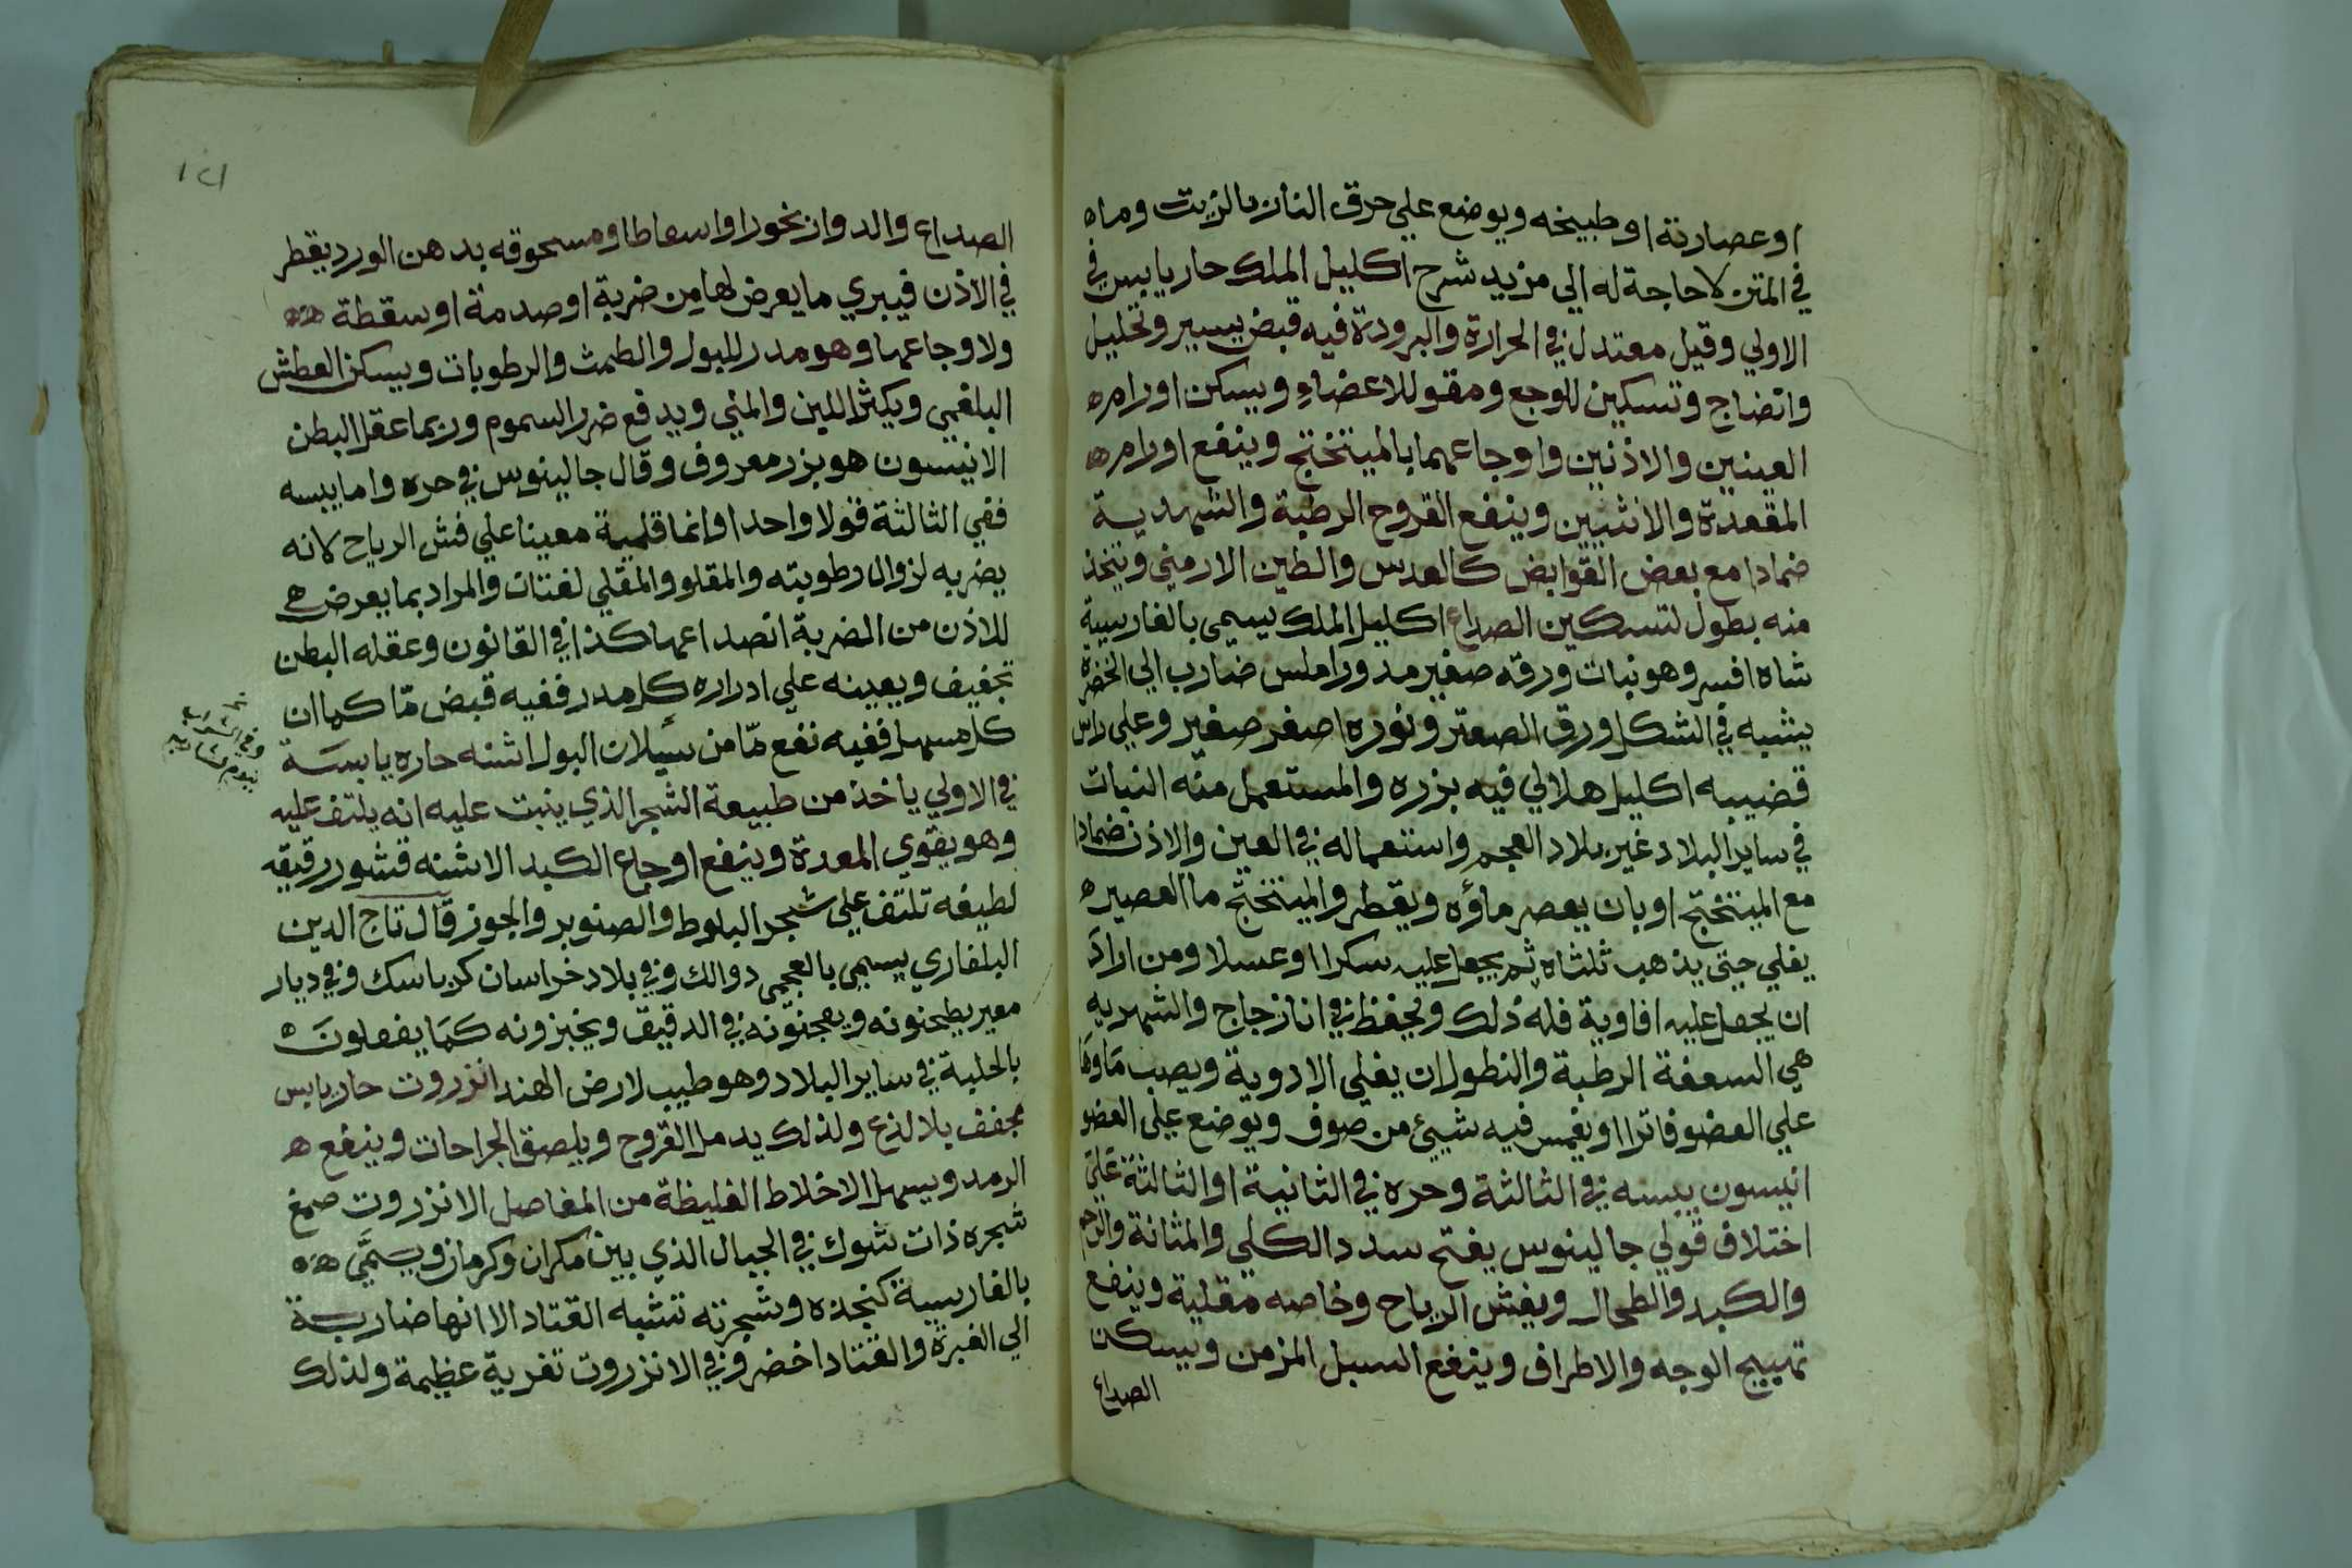 او عصارته او طبيخه ويوضع علي حرق النار بالزيت وماه
في المتن لا حاجة له الي مزيد شرح اكليل الملك حار يابس في
الاولي وقيل معتدل في الحرارة والبرودة فيه قبض يسير وتحليل
وانضاج وتسكين للوجع ومقو للاعضاءِ ويسكن اورام ه
العينين والاذنين واوجاعهما بالميتختج وينفع اورام ه
المقعدة والانثيين وينفع القروح الرطبة والشهدية
ضمادا مع بعض القوابض كالعدس والطين الارمني ويتخذ
منه بطول لتسكين الصداع اكليل الملك يسمي بالفارسية
شاه افسر وهو نبات ورقه صغير مدور املس ضارب الي الخضرة
يشبه في الشكل ورق الصعتر ونوره اصفر صغير وعلي راس
قضيبه اكليل هلالي فيه بزره والمستعمل منه النبات
في ساير البلاد غير بلاد العجم واستعماله في العين والاذن ضمادا
مع الميتختج او بان يعصر ماؤه ويقطر والميتختج ما العصير ه
يغلي حتي يذهب ثلثاه ثم يجعل عليه سكرا او عسلا ومن اراد
ان يجعل عليه افاوية فله ذلك ويحفظ في انا زجاج والشهديه
هي السعفة الرطبة والنطول ان يغلي الادوية ويصب ماوها
علي العضو فاترا او يغمس فيه شيئ من صوف ويوضع علي العضو
انيسون يبسه في الثالثة وحره في الثانية او الثالثة علي
اختلاف قولي جالينوس يفتح سدد الكلي والمثانة والرحم
والكبد والطحال ويفش الرياح وخاصه مقلية وينفع
تهبيج الوجه والاطراف وينفع السبل المزمن ويسكن
الصداع
١٢١
الصداع والدوار بخورا واسعاطا ومسحوقه بدهن الورد يقطر
في الاذن فيبري ما يعرض لها من ضربة او صدمة او سقطة ه ه
ولاوجاعها وهو مدر للبول والطمث والرطوبات ويسكن العطش
البلغمي ويكثر اللبن والمني ويدفع ضرر السموم وربما عقل البطن
الانيسون هو بزر معروف وقال جالينوس في حره واما يبسه
ففي الثالثة قولا واحدا وانما قلمية معينا علي فش الرياح لانه
يضر به لزوال رطوبته والمقلو والمقلي لغتان والمراد بما يعرض ه
للاذن من الضربة انصداعها كذا في القانون وعقله البطن
تجفيف ويعينه علي ادراره كل مدر ففيه قبض مّا كما ان
كل مسهل ففيه نفع مّا من سيلان البول اشنه حاره يابسة
في الاولي ياخذ من طبيعة الشجر الذي ينبت عليه انه يلتف عليه
وهو يقوي المعدة وينفع اوجاع الكبد الاشنه قشور رقيقه
لطيفه تلتف علي شجر البلوط والصنوبر والجوز قال تاج الدين
البلغاري يسمي بالعجمي دوالك وفي بلاد خراسان كرباسك وفي ديار
مصر يطحنونه ويعجنونه في الدقيق ويخبزونه كما يفعلون ه
بالحلبة في ساير البلاد وهو طيب لارض الهند انزروت حار يابس
مجفف بلا لذع ولذلك يدمل القروح ويلصق الجراحات وينفع ه
الرمد ويسهل الاخلاط الغليظة من المفاصل الانزروت صمغ
شجره ذات شوك في الجبال الذي بين مكران وكرمان ويسمَّي ه ه
بالفارسية كنجذه وشجرته تشبه القتاد الا انها ضاربة
الي الغبرة والقتاد اخضر وفي الانزروت تغرية عظيمة ولذلك